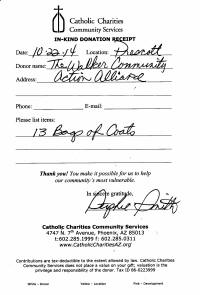 Catholic Charities
Community Services
IN-KIND DONATION RECEIPT
Date: 10-22-14 Location: Prescott
Donor name: The Walker Community
Address: Action Alliance
Phone: E-mail:
Please list items:
13 Bags of Coats
Thank you! You make it possible for us to help
our community's most vulnerable.
In sincere gratitude,
Smith
Catholic Charities Community Services
4747 N. 7th Avenue, Phoenix, AZ 85013
t:602.285.1999 f: 602.285.0311
www.CatholicCharitiesAZ.org
Contributions are tax-deductible to the extent allowed by law. Catholic Charities
Community Services does not place a value on your gift; valuation is the
privilege and responsibility of the donor. Tax ID 86-0223999
White - Donor Yellow - Location Pink - Development